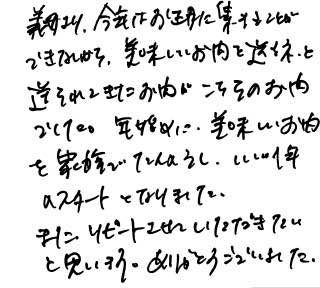 義母より、今年はお正月に集まることが
できないから、美味しいお肉を送るネ、と
送られてきたお肉が こちらのお肉
でした。年始めに、美味しいお肉
を家族でたんのうし、いい1年
のスタートとなりました。
また、リピートさせていただきたい
と思います。ありがとうございました。